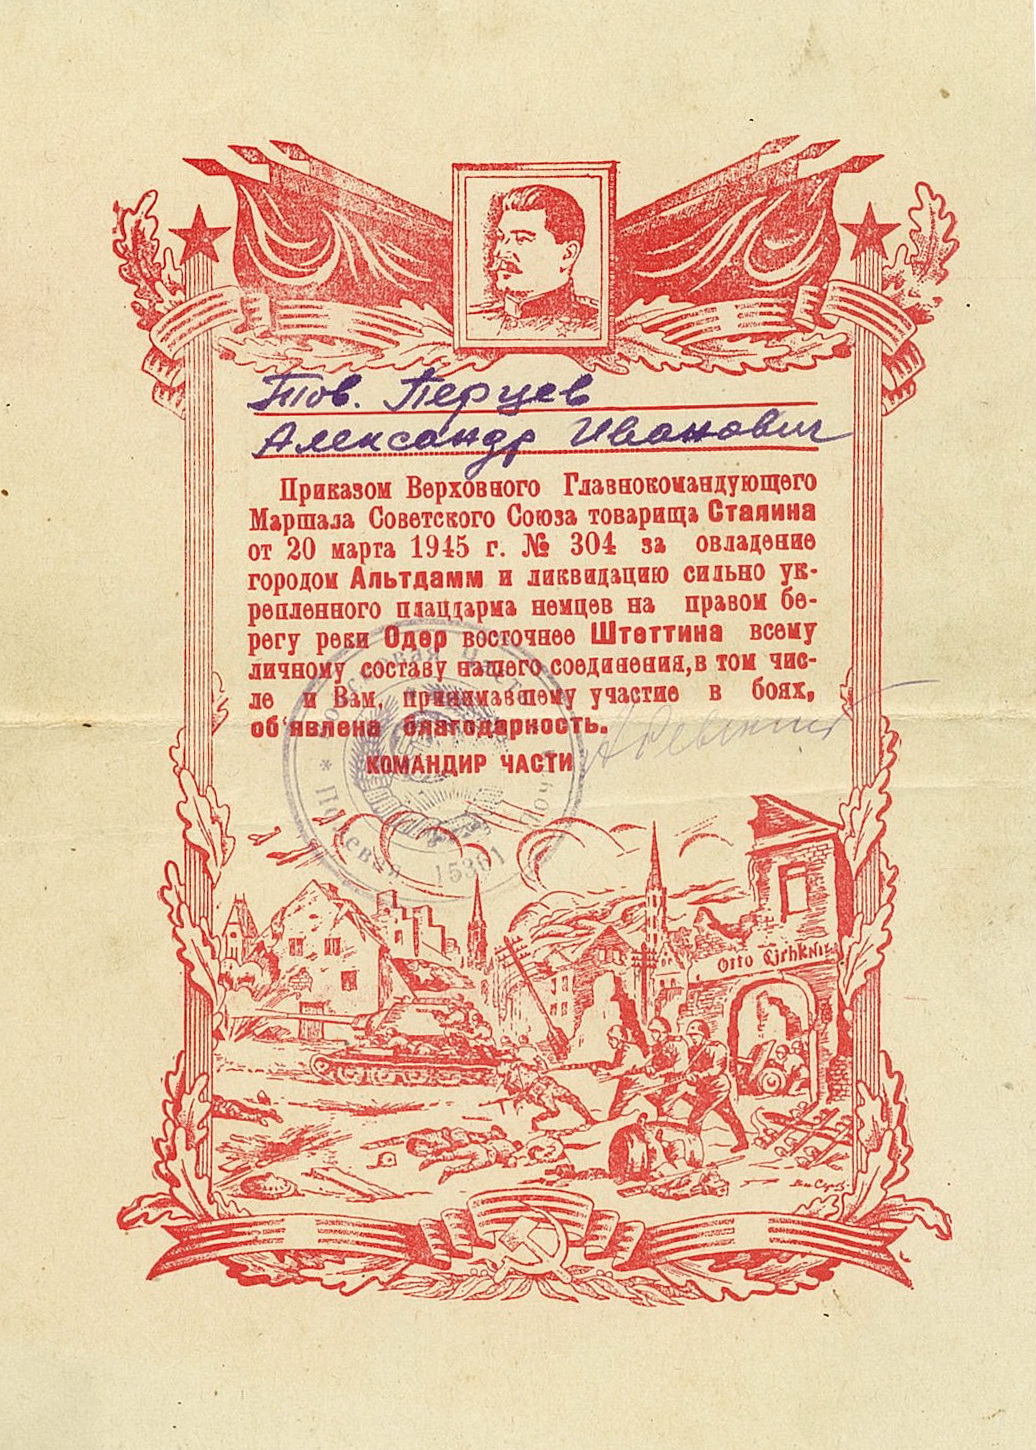 Тов. Перцев
Александр Иванович
Приказом Верховного Главнокомандующего
Маршала Советского Союза товарища Сталина
от 20 марта 1945 г. № 304 за овладение
городом Альтдамм и ликвидацию сильно ук-
репленного плацдарма немцев на правом бе-
регу реки Одер восточнее Штеттина всему
личному составу нашего соединения, в том чис-
ле и Вам, принимавшему участие в боях,
об'явлена благодарность.
КОМАНДИР ЧАСТИ
* Полевая 15361
Otto